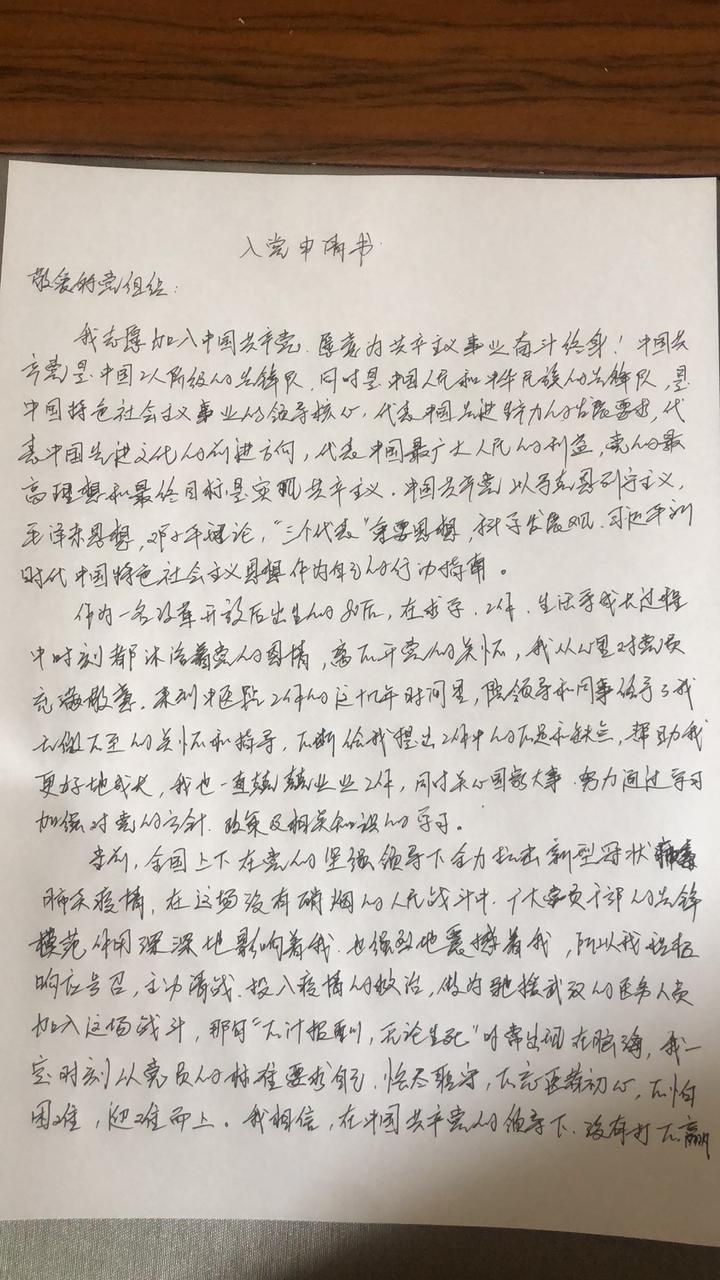 入党申请书
敬爱的党组织：
我志愿加入中国共产党，愿意为共产主义事业奋斗终身！中国共
产党是中国工人阶级的先锋队，同时是中国人民和中华民族的先锋队，是
中国特色社会主义事业的领导核心，代表中国先进生产力的发展要求，代
表中国先进文化的前进方向，代表中国最广大人民的利益，党的最
高理想和最终目标是实现共产主义。中国共产党以马克思列宁主义、
毛泽东思想，邓小平理论，“三个代表”重要思想，科学发展观、习近平新
时代中国特色社会主义思想作为自己的行动指南。
作为一名改革开放后出生的80后，在求学、工作、生活等成长过程
中时刻都沐浴着党的恩情，离不开党的关怀，我从心里对党
充满敬意。来到中医院工作的这十几年时间里，院领导和同事给予了我
无微不至的关怀和指导，不断给我提出工作中的不足和缺点，帮助我
更好地成长，我也一直兢兢业业工作，同时关心国家大事，努力通过学习
加强对党的方针、政策及相关知识的学习。
当前，全国上下在党的坚强领导下全力抗击新型冠状病毒
肺炎疫情，在这场没有硝烟的人民战斗中，广大党员干部的先锋
模范作用深深地影响着我，也强烈地震撼着我，所以我积极
响应号召，主动请战，投入疫情的救治，做为驰援武汉的医务人员
加入这场战斗，那句“不计报酬，无论生死”时常出现在脑海，我一
定时刻以党员的标准要求自己，恪尽职守，不忘医者初心，不怕
困难，迎难而上。我相信，在中国共产党的领导下，没有打不赢